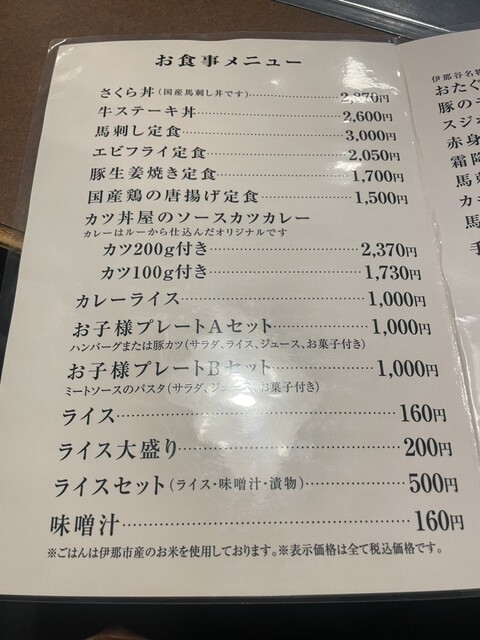 お食事メニュー
さくら丼(国産馬刺し丼です) 2,870円
牛ステーキ丼 2,600円
馬刺し定食 3,000円
エビフライ定食 2,050円
豚生姜焼き定食 1,700円
国産鶏の唐揚げ定食 1,500円
カツ丼屋のソースカツカレー
カレーはルーから仕込んだオリジナルです
カツ200g付き 2,370円
カツ100g付き 1,730円
カレーライス 1,000円
お子様プレートAセット 1,000円
ハンバーグまたは豚カツ(サラダ、ライス、ジュース、お菓子付き)
お子様プレートBセット 1,000円
ミートソースのパスタ(サラダ、ジュース、お菓子付き)
ライス 160円
ライス大盛り 200円
ライスセット(ライス・味噌汁・漬物) 500円
味噌汁 160円
※ごはんは伊那市産のお米を使用しております。※表示価格は全て税込価格です。
伊那谷名物
おたぐ
豚の
スジ
赤身
霜降
馬刺
カ
馬